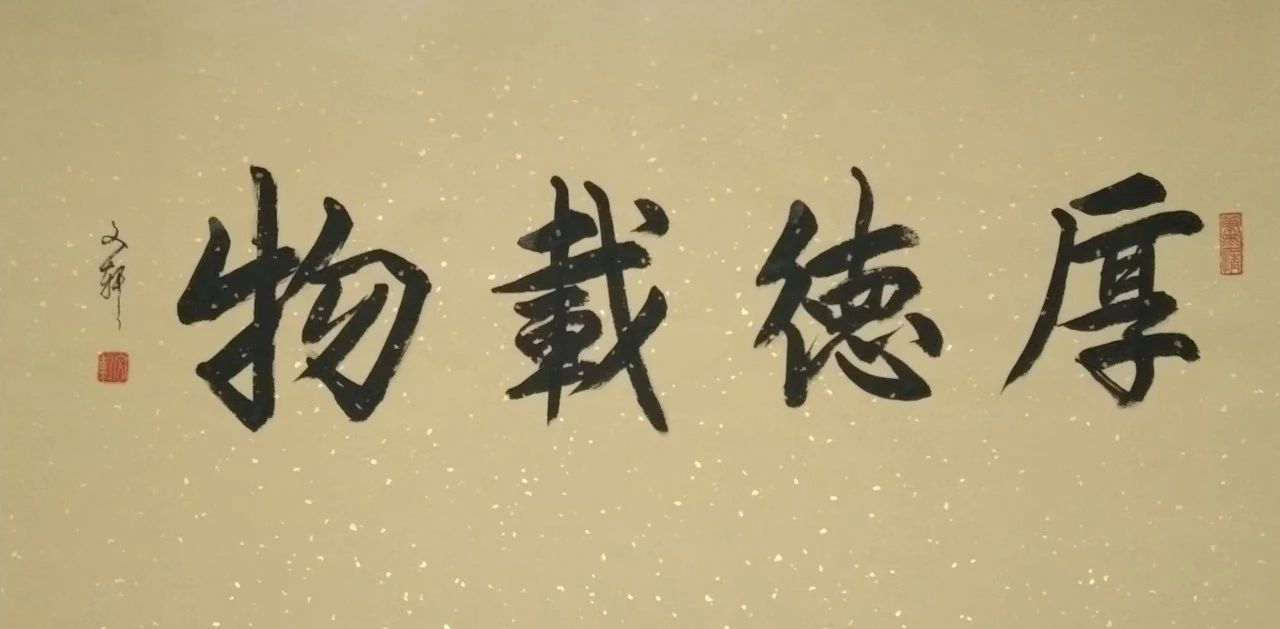 厚德載物
文軒